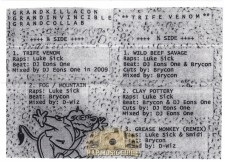 GRANDKILLACON
GRANDINVINCIBLE
GRANDCOLLAB
**TRIFE VENOM**
++++ A SIDE ++++
1. TRIFE VENOM
Raps: Luke Sick
Beat: DJ Eons One
Mixed by DJ Eons One in 2009
2. FOG / MOUNTAIN
Raps: Luke Sick
Beat: Eons One
Mixed by: D-Wiz
++++ B SIDE ++++
1. WILD BEEF SAVAGE
Raps: Luke Sick
Beat: DJ Eons One & Brycon
Cuts by: Brycon
Mixed by: Brycon
2. CLAY POTTERY
Raps: Luke Sick
Beat: Brycon & DJ Eons One
Cuts by: DJ Eons One
Mixed by: D-Wiz
3. GREASE MONKEY (REMIX)
Raps: Luke Sick &
Beat: DJ Eons One
Mixed by: D-Wiz